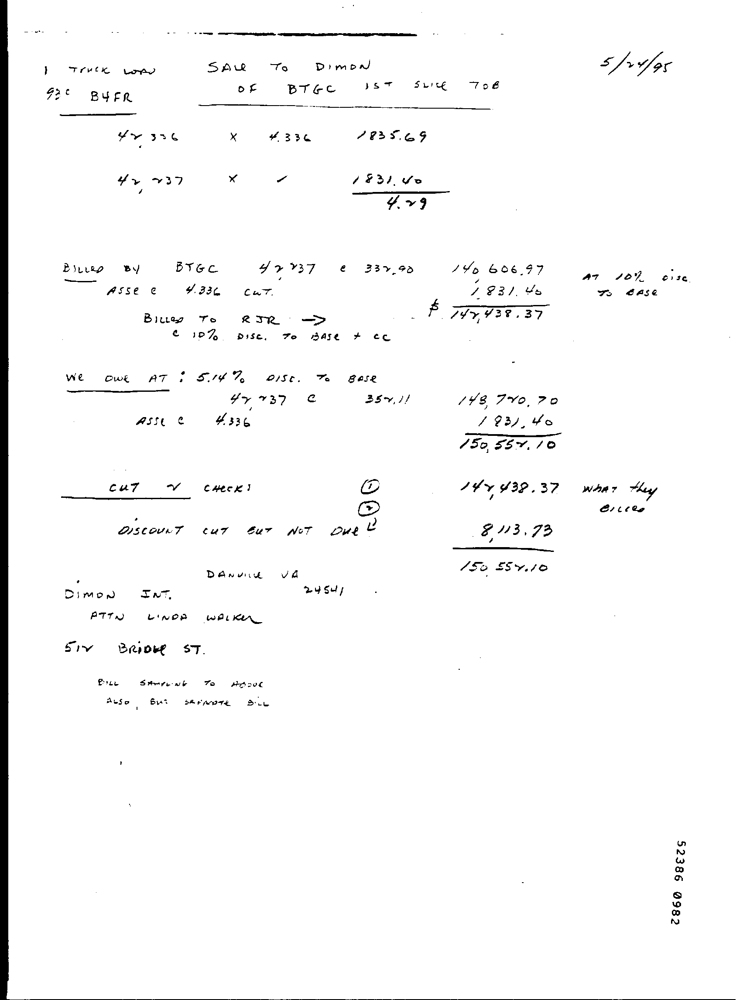 5/24/95
1 TRUCK LOAD SALE TO DIMON
93C B4FR OF BTGC 1ST SLICE TOB
42,336 X 4.336 1835.69
42,237 X ✓ 1831.40
4.29
BILLED BY BTGC 42237 @ 332.90 140,606.97 AT 10% DISC.
ASSE @ 4.336 CWT. 1,831.40 TO BASE
BILLED TO RJR → $ 142,438.37
@ 10% DISC. TO BASE + CC
WE OWE AT: 5.14% DISC. TO BASE
42,237 @ 352.11 148,720.70
ASSE @ 4.336 1831.40
150,552.10
CUT 2 CHECKS ① 142,438.37 WHAT they
② BILLED
DISCOUNT CUT BUT NOT DUE 8,113.73
150,552.10
DANVILLE VA
DIMON INT. 24541
ATTN LINDA WALKER
512 BRIDGE ST.
BILL SAMPLING TO ABOVE
ALSO, BUT SEPARATE BILL
52386 0982